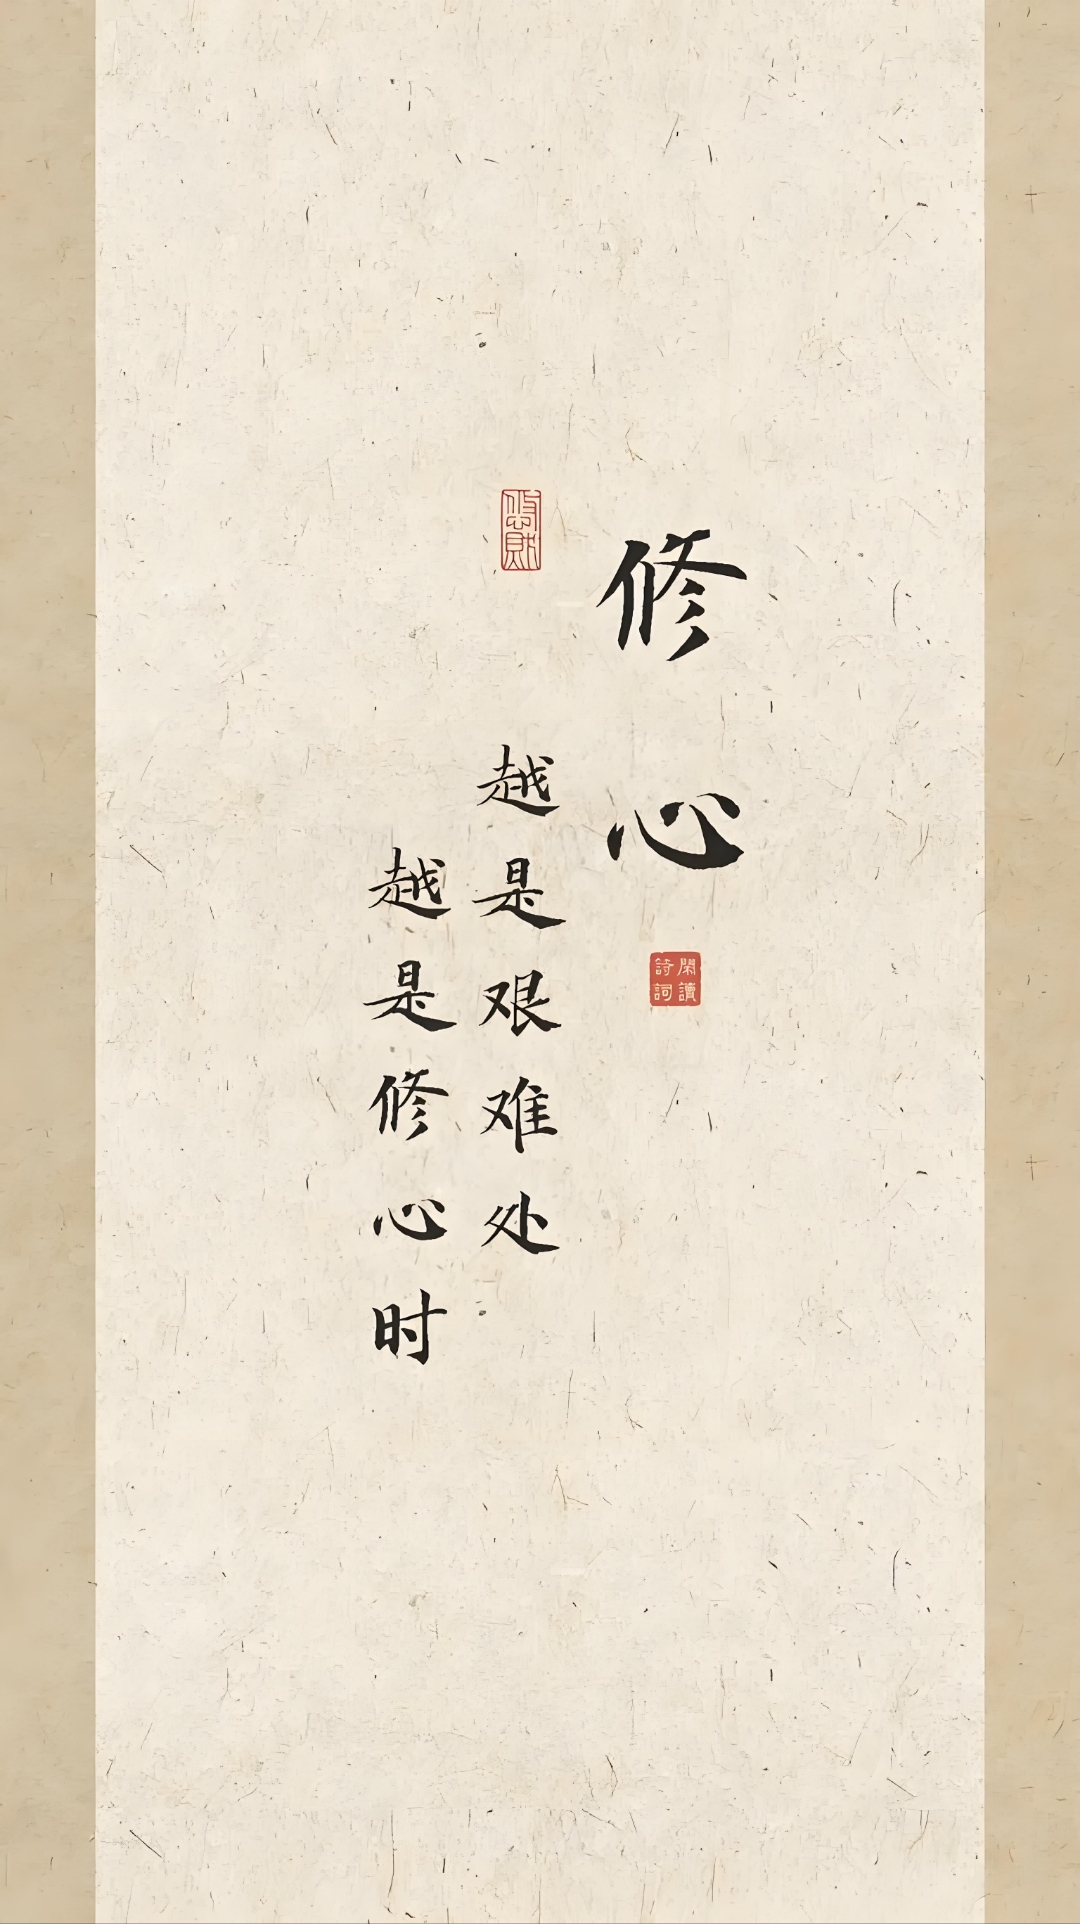 修心
閑讀
詩詞
越是艰难处
越是修心时